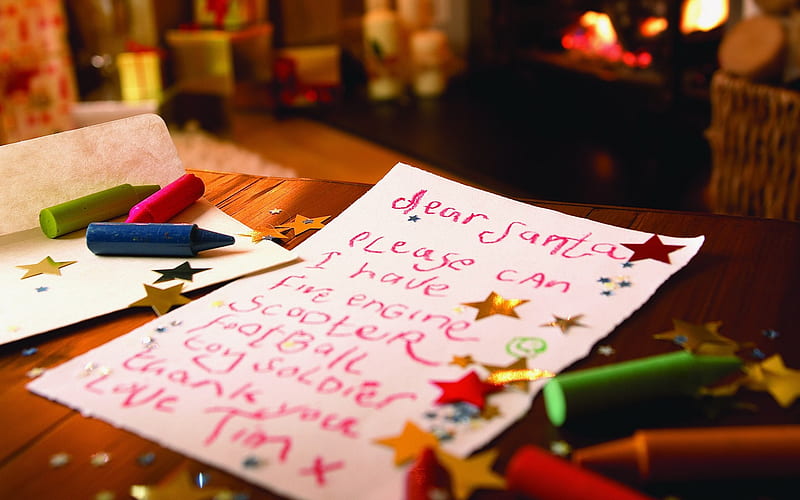 dear Santa
PLEASE CAN
I have
Fire engine
SCOOTER
FootBALL
toy SoLDIER
thank you
LOVE Tim x